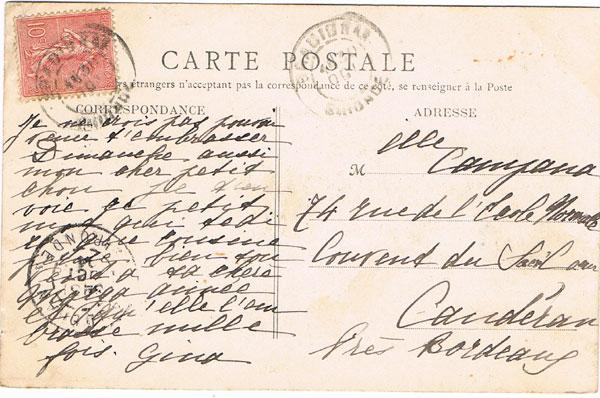 CARTE POSTALE
étrangers n'acceptant pas la correspondance de ce côté, se renseigner à la Poste
CORRESPONDANCE
Je ne crois pas pouvoir
venir t'embrasser
Dimanche aussi
mon cher petit
chou je t'en
voie ce petit
mot qui te di
que cousine
bien
a ta chère
année
et qu'elle t'em
brasse mille
fois. Gina
ADRESSE
M elle Campana
74 rue de l'École Normale
Couvent du
Caudéran
Près Bordeaux
10